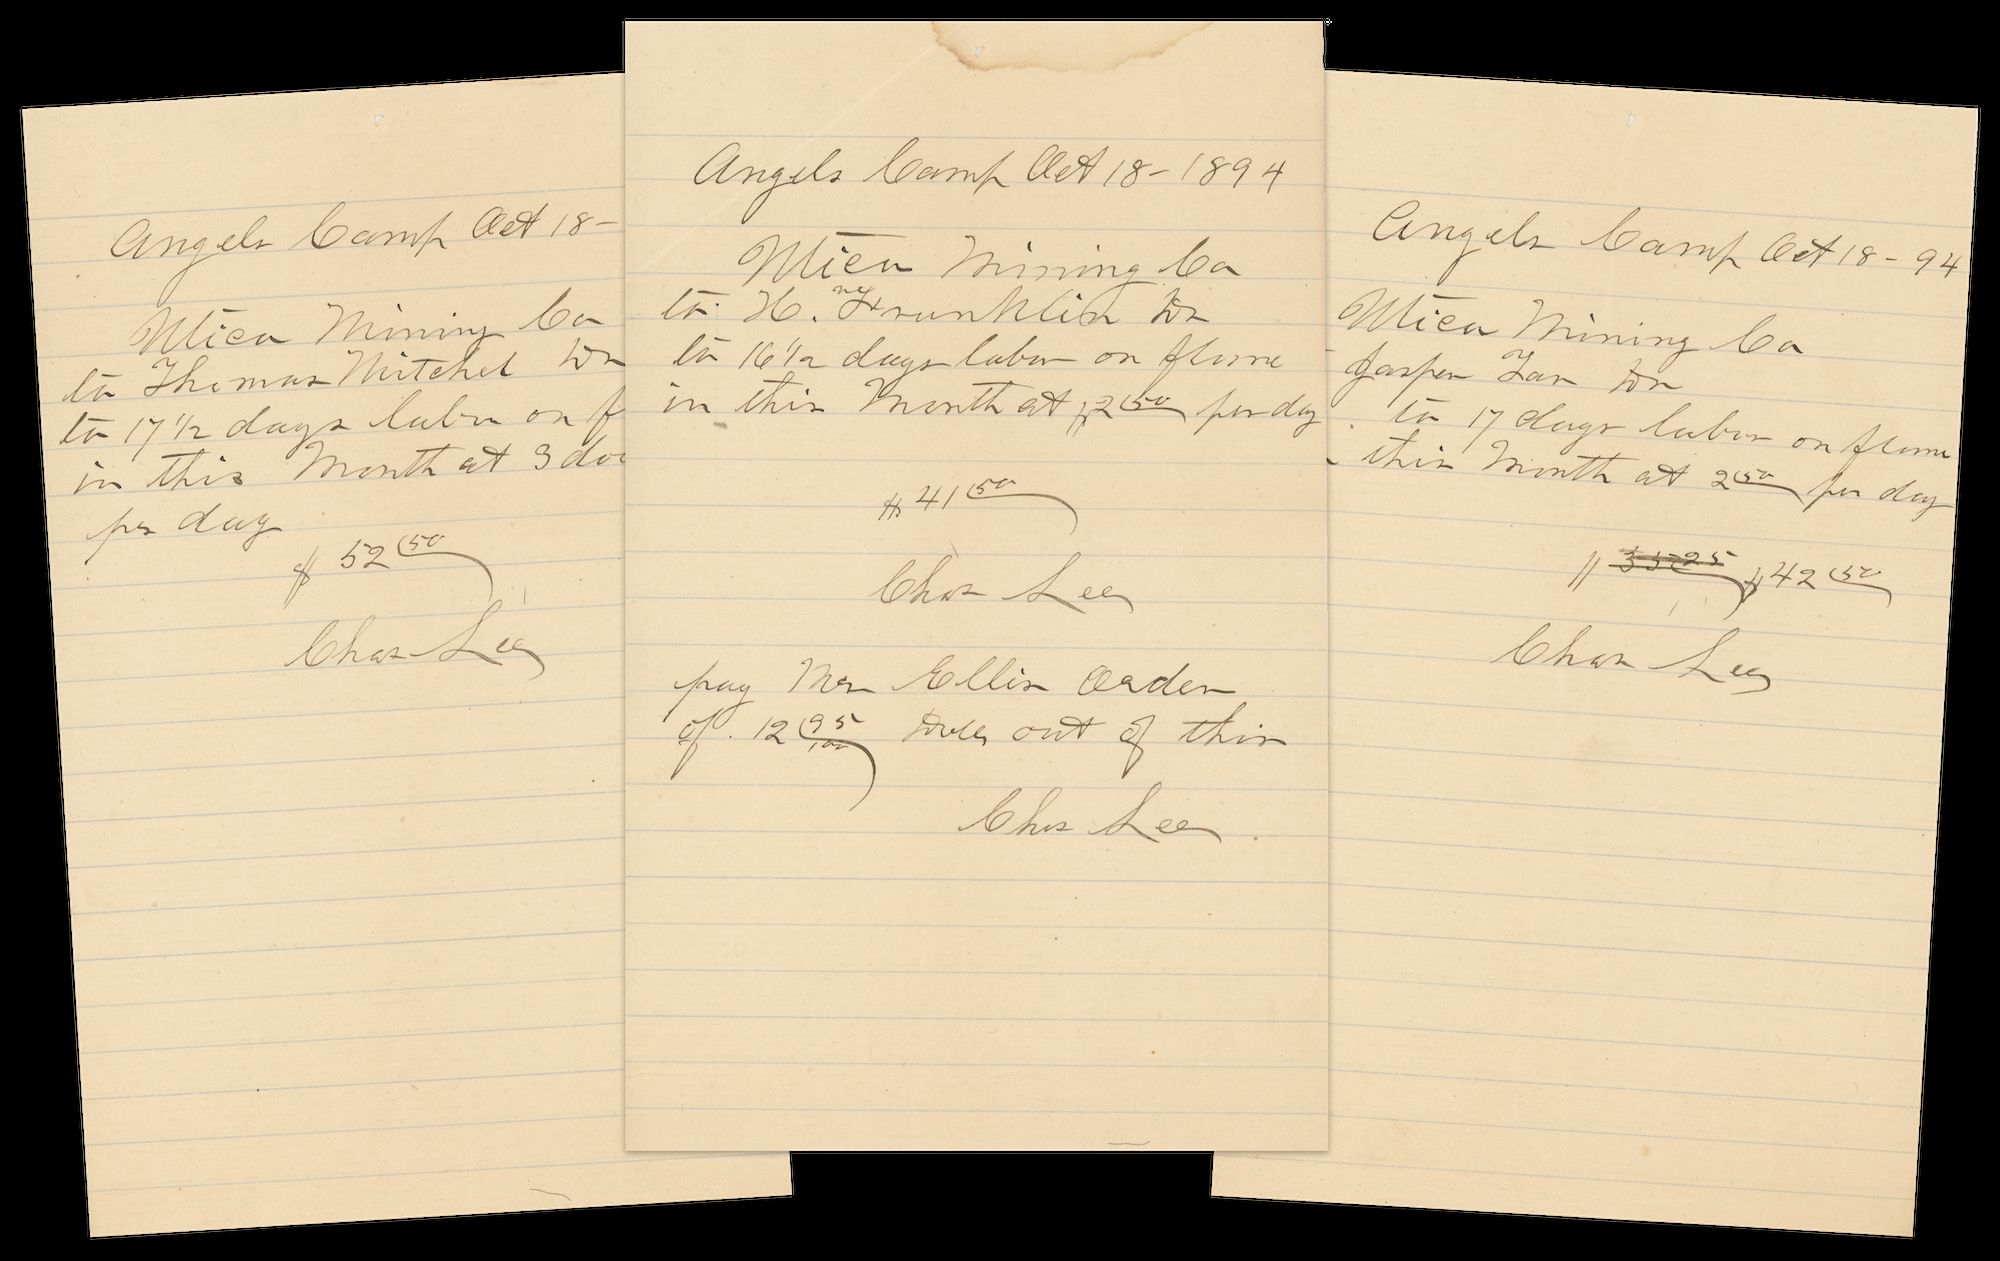 Angels Camp Oct 18-
Utica Mining Co
to Thomas Mitchel Dr
to 17 1/2 days labor on f
in this Month at 3 dol
per day
$ 52 50
Chas Lee
Angels Camp Oct 18-1894
Utica Mining Co
to H. Franklin Dr
to 16 1/2 days labor on flume
in this Month at $2 50 per day
$ 41 50
Chas Lee
pay Mr Ellis Order
of 12 95/100 out of this
Chas Lee
Angels Camp Oct 18-94
Utica Mining Co
Jasper Dr
to 17 days labor on flume
this Month at 2 50 per day
$ 42 50
Chas Lee